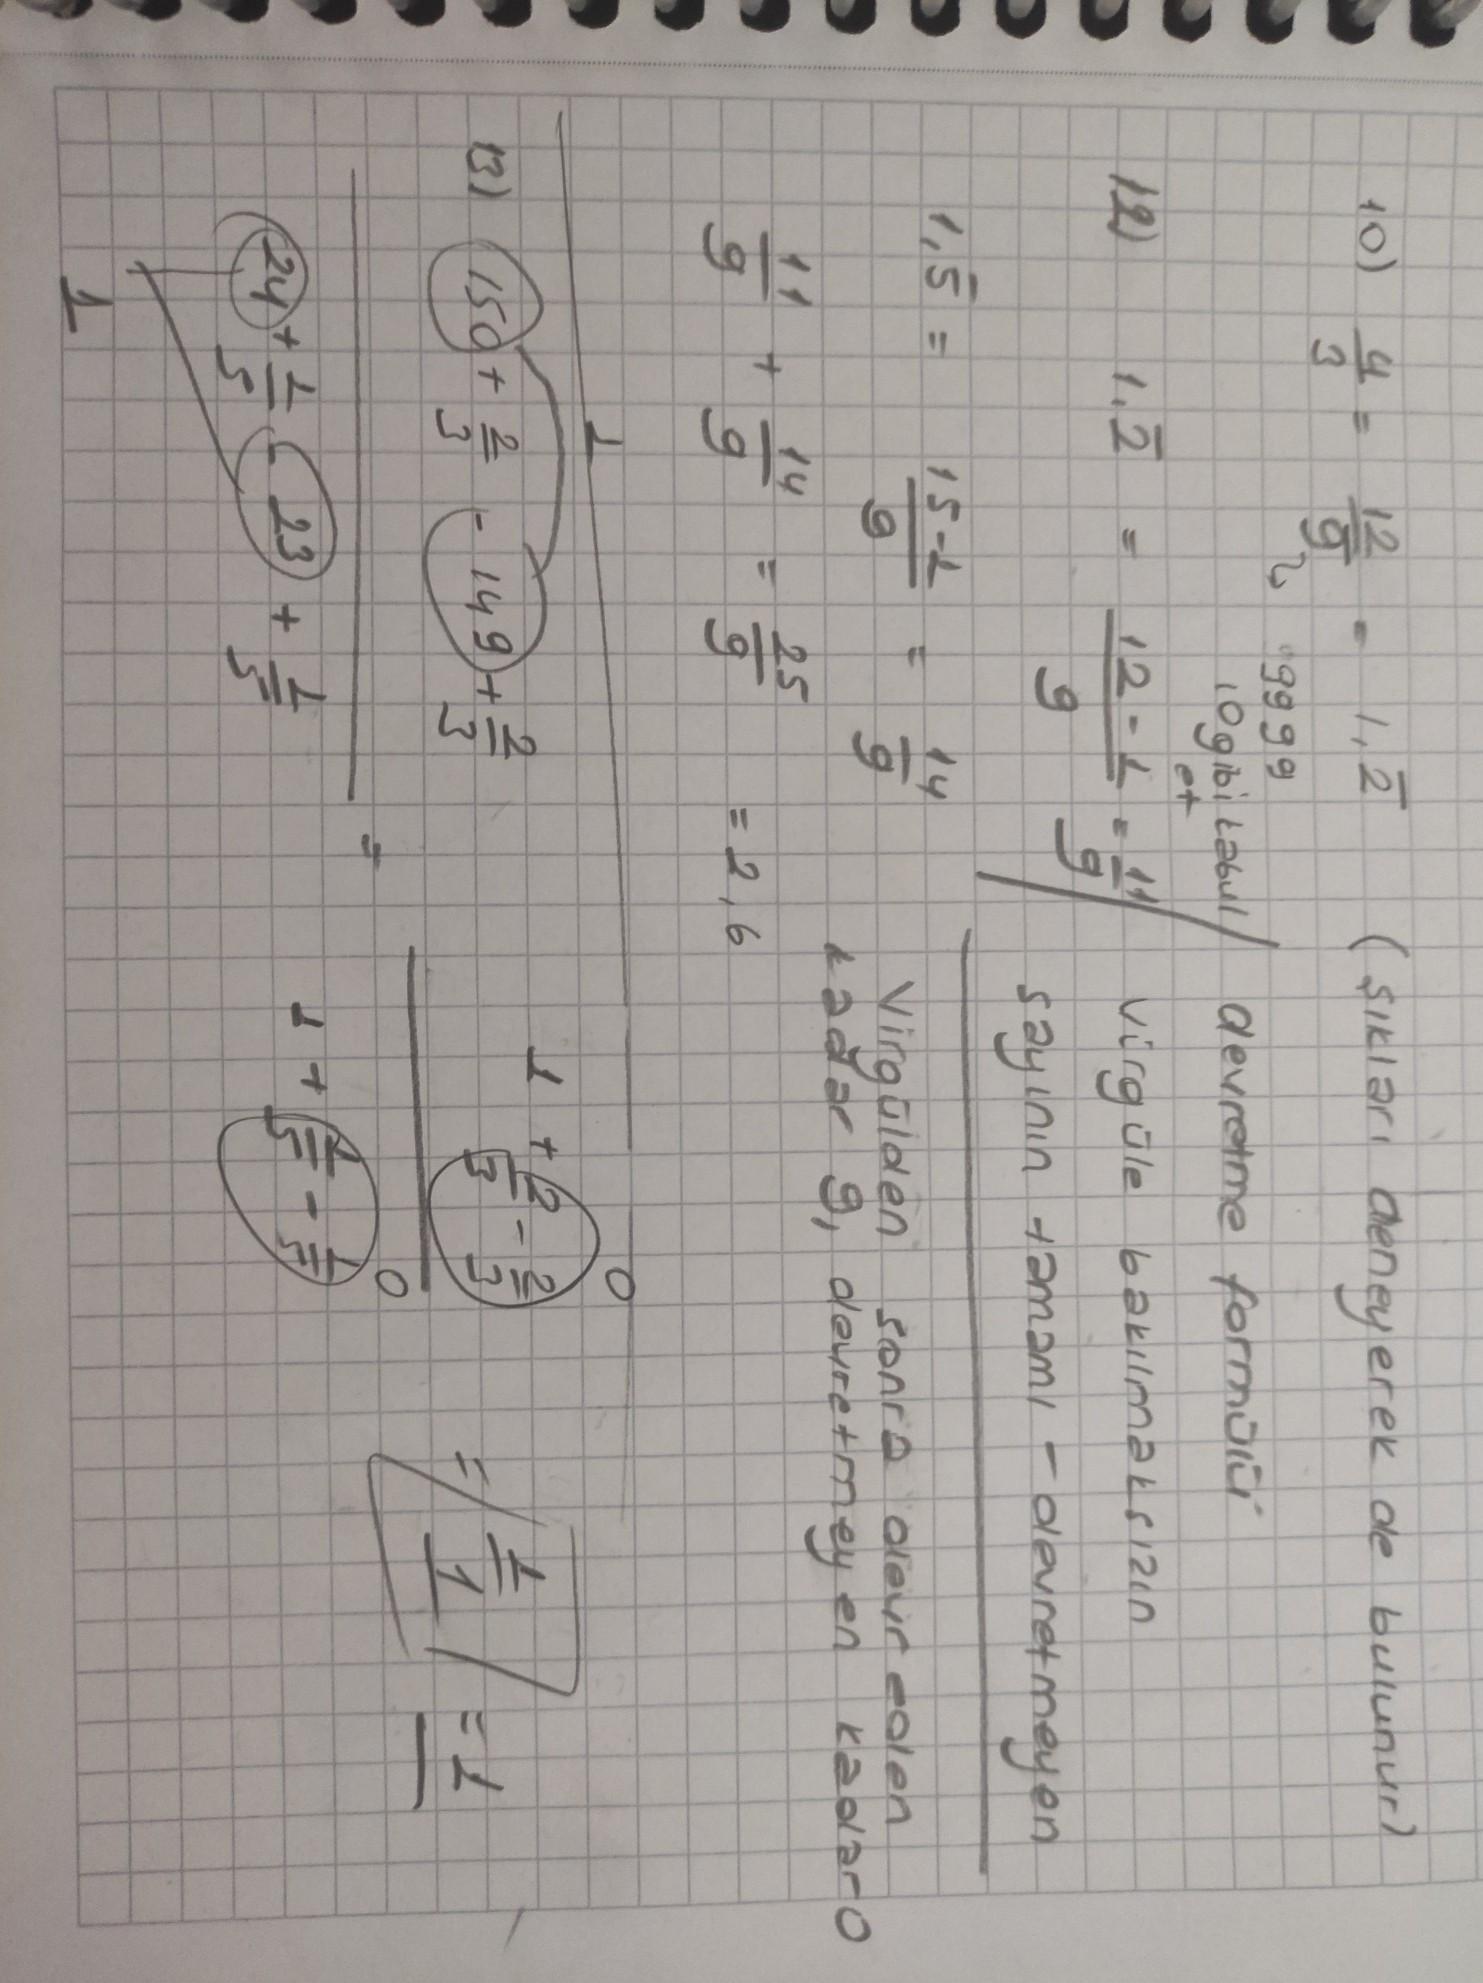 10) 4/3 = 12/9 = 1,2̅ (şıkları deneyerek de bulunur)
9999
10 gibi kabul
et
12) 1,2̅ = 12-1/9 = 11/9
devretme formülü
virgüle bakılmaksızın
sayının tamamı - devretmeyen
Virgülden sonra devir eden
kadar 9, devretmeyen kadar 0
1,5̅ = 15-1/9 = 14/9
11/9 + 14/9 = 25/9 = 2,6
1
13) 150 + 2/3 - 149 + 2/3
24 + 1/5 - 23 + 1/5
1
=
1 + 2/3 - 2/3 0
1 + 1/5 - 1/5 0
= 1/1 = 1